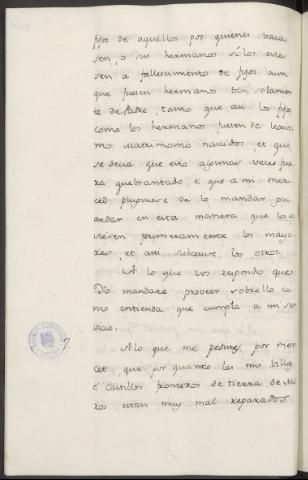 fijos de aquellos por quienes vaca
sen, o sus hermanos sólos ovie
sen a fallescimiento de fijos aun
que fuesen hermanos tan solamen
te de Padre, tanto que así los fijos
como los hermanos fuesen de legiti
mo matrimonio nascidos, et que
se decia que esto algunas veces fue
ra quebrantado é que a mi mer
ced pluguiese de lo mandar gu
ardar en esta manera que lo o
viesen primeramente los mayo
res, et asi subcesive, los otros.
A lo que vos respondo que
Yo mandaré proveer sobrello co
mo entienda que cumpla a mi ser
vicio.
7
A lo que me pedistes por mer
cet, que por quanto las mis villas
é castillos fronteros de tierra de Mo
ros estan muy mal reparados